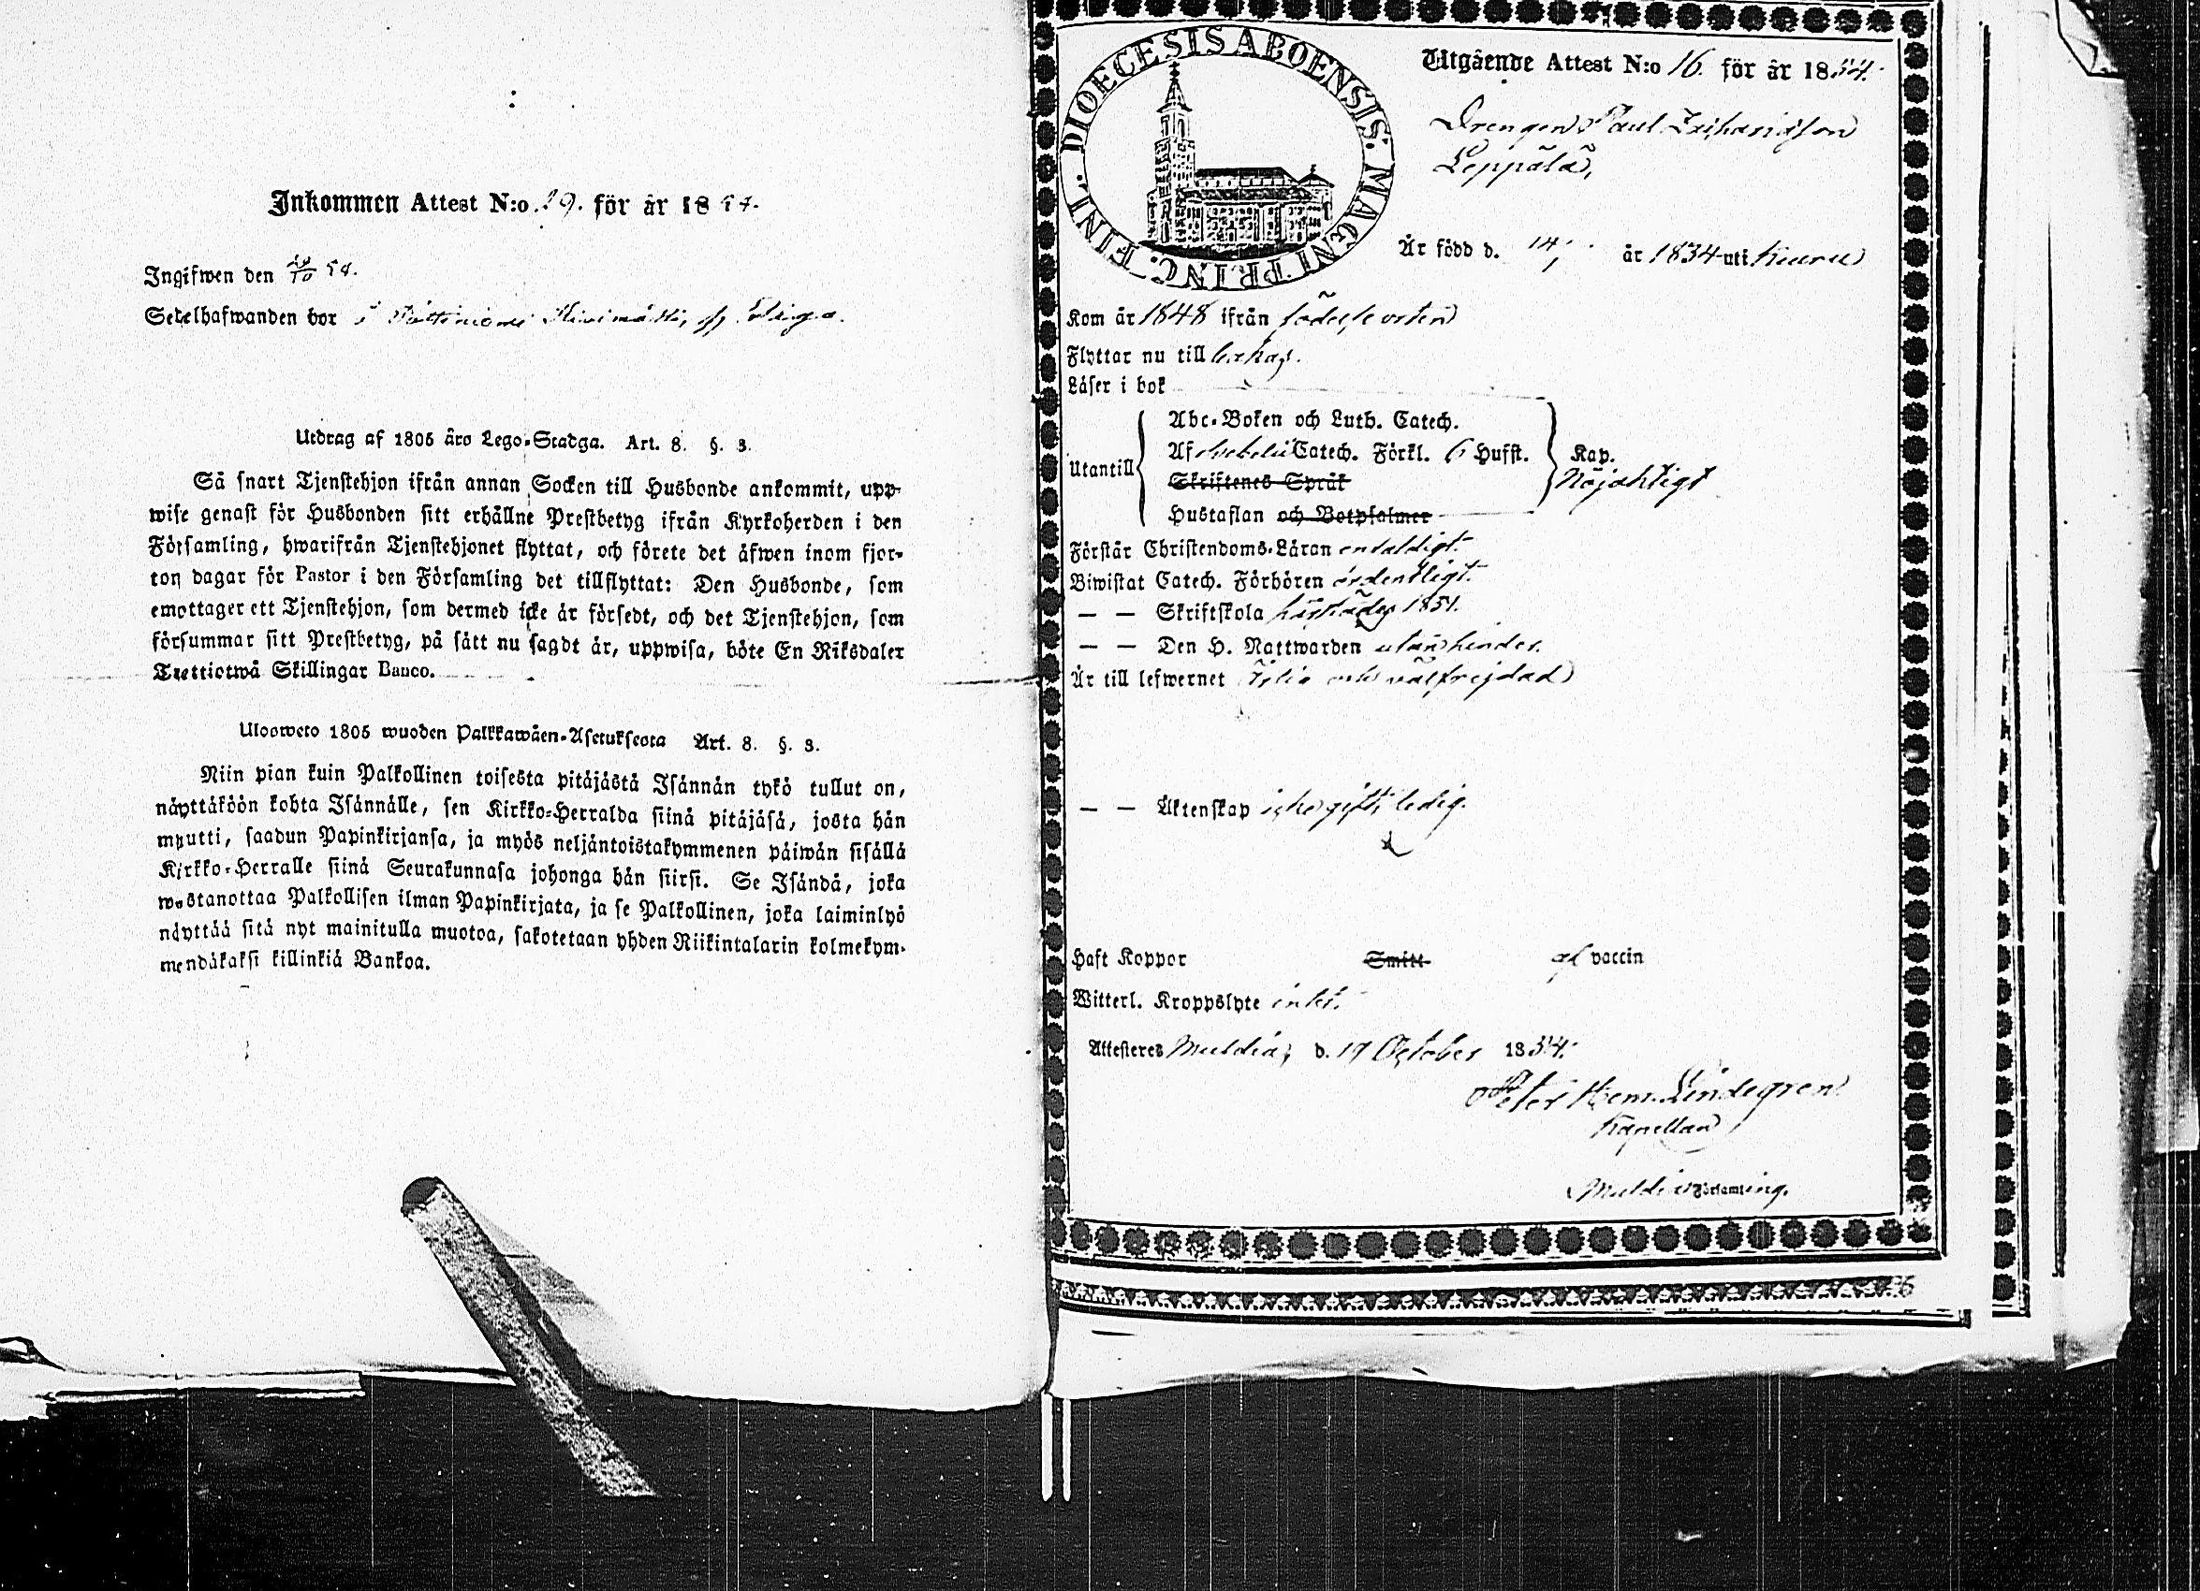 Inkommen Attest N:o 29. för år 1854.
Ingifwen den 29/10 54.
Sedelhafwanden bor i
Utdrag af 1805 års Lego-Stadga. Art. 8. §. 3.
Så snart Tjenstehjon ifrån annan Socken till Husbonde ankommit, upp-
wise genast för Husbonden sitt erhållne Prestbetyg ifrån Kyrkoherden i den
Församling, hwarifrån Tjenstehjonet flyttat, och förete det äfwen inom fjor-
ton dagar för Pastor i den Församling det tillflyttat: Den Husbonde, som
emottager ett Tjenstehjon, som dermed icke är försedt, och det Tjenstehjon, som
försummar sitt Prestbetyg, på sätt nu sagdt är, uppwisa, böte En Riksdaler
Trettiotwå Skillingar Banco.
Ulosweto 1805 wuoden Palkkawäen-Asetuksesta Art. 8. §. 3.
Niin pian kuin Palkollinen toisesta pitäjästä Isännän tykö tullut on,
näyttäköön kohta Isännälle, sen Kirkko-Herralda siinä pitäjäsä, josta hän
muutti, saadun Papinkirjansa, ja myös neljäntoistakymmenen päiwän sisällä
Kirkko-Herralle siinä Seurakunnasa johonga hän siirsi. Se Isändä, joka
wastanottaa Palkollisen ilman Papinkirjata, ja se Palkollinen, joka laiminlyö
näyttää sitä nyt mainitulla muotoa, sakotetaan yhden Riikintalarin kolmekym-
mendäkaksi killinkiä Bankoa.
DIOECESIS ABOENSIS. MAGNI PRINC. FINL.
Utgående Attest N:o 16. för år 1854.
Drengen Paul Zachariasson
Leppälä,
Är född d. 14/ år 1834 uti Kuru
Kom år 1848 ifrån födelseorten
Flyttar nu till
Läser i bok
Abc-Boken och Luth. Catech.
Af Svebelii Catech. Förkl. 6 Hufst.
Utantill
Skriftenes Språk
Hustaflan och Botpsalmer
Kap.
Nöjaktigt
Förstår Christendoms-Läran enfaldigt.
Biwistat Catech. Förhören ordentligt.
— — Skriftskola härstädes 1851.
— — Den H. Nattwarden utan hinder.
Är till lefwernet och välfrejdad
— — Äktenskap icke gift, ledig.
Haft Koppor Smitt- af vaccin
Witterl. Kroppslyte intet.
Attesteras Muldia, d. 17 October 1854.
Peter Herm. Lindegren
Kapellan
Muldia Församling.